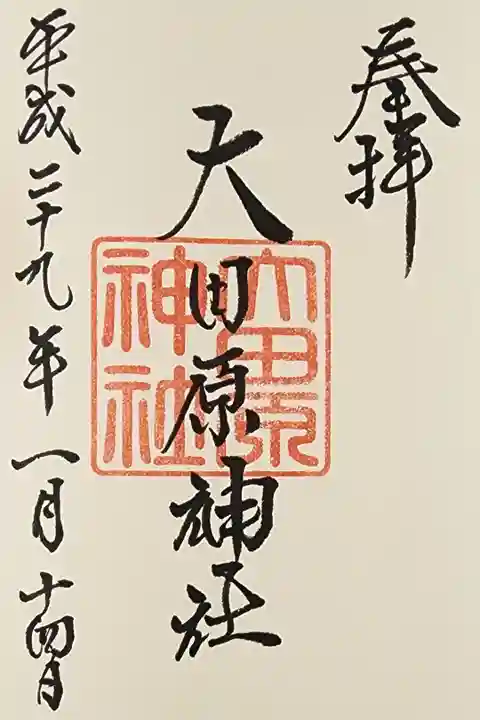 奉拝
大田原神社
大田原
神社
平成二十九年一月十四日